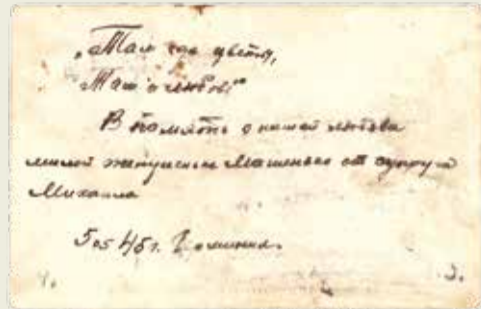 „Там где цветы,
Там и любовь“
В память о нашей любови
милой женушеньке Машеньке от супруга
Михаила
5 05 45 г.